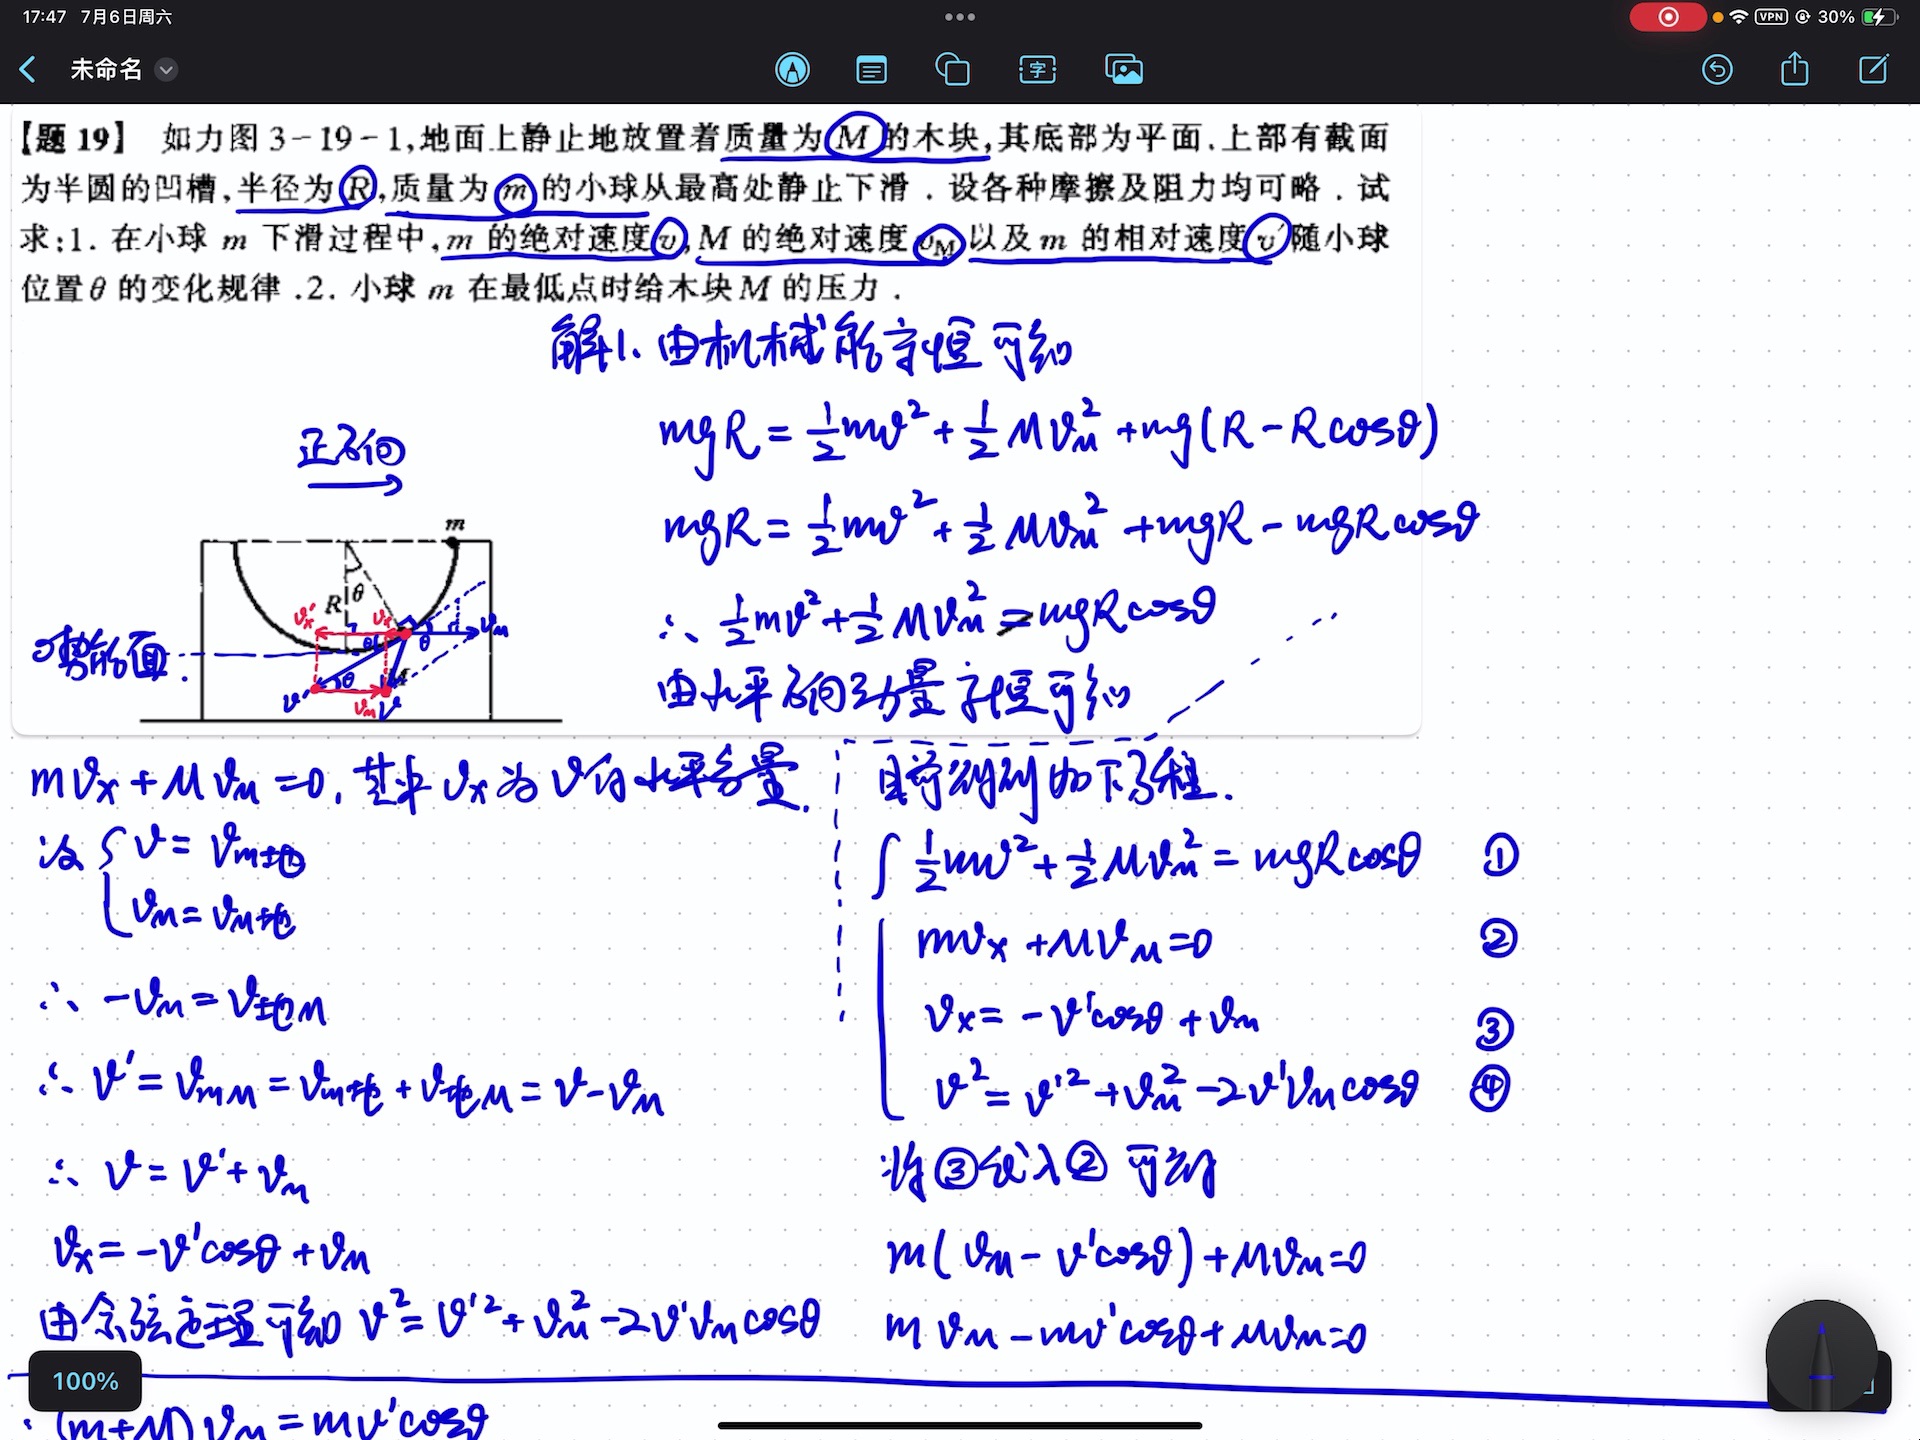 17:47 7月6日周六
VPN 30%
未命名
字
【题 19】 如力图 3-19-1,地面上静止地放置着质量为 M 的木块,其底部为平面,上部有截面
为半圆的凹槽,半径为 R,质量为 m 的小球从最高处静止下滑.设各种摩擦及阻力均可略.试
求:1. 在小球 m 下滑过程中,m 的绝对速度 v,M 的绝对速度 v_M 以及 m 的相对速度 v′ 随小球
位置 θ 的变化规律.2. 小球 m 在最低点时给木块 M 的压力.
解1. 由机械能守恒可知
mgR = ½mv² + ½Mv_M² + mg(R - Rcosθ)
正方向
mgR = ½mv² + ½Mv_M² + mgR - mgRcosθ
m
R θ
∴ ½mv² + ½Mv_M² = mgRcosθ
v_x′ v_x θ θ v_M
0势能面
v′ θ v_M v M
由水平方向动量守恒可知
mv_x + Mv_M = 0, 其中 v_x 为 v 的水平分量.
设 { v = v_m地
v_M = v_M地
∴ -v_M = v_地M
∴ v′ = v_mM = v_m地 + v_地M = v - v_M
∴ v = v′ + v_M
v_x = -v′cosθ + v_M
由余弦定理可知 v² = v′² + v_M² - 2v′v_M cosθ
目前得到如下方程.
{ ½mv² + ½Mv_M² = mgRcosθ ①
mv_x + Mv_M = 0 ②
v_x = -v′cosθ + v_M ③
v² = v′² + v_M² - 2v′v_M cosθ ④
将③代入②可得
m(v_M - v′cosθ) + Mv_M = 0
mv_M - mv′cosθ + Mv_M = 0
100%
∴ (m+M)v_M = mv′cosθ